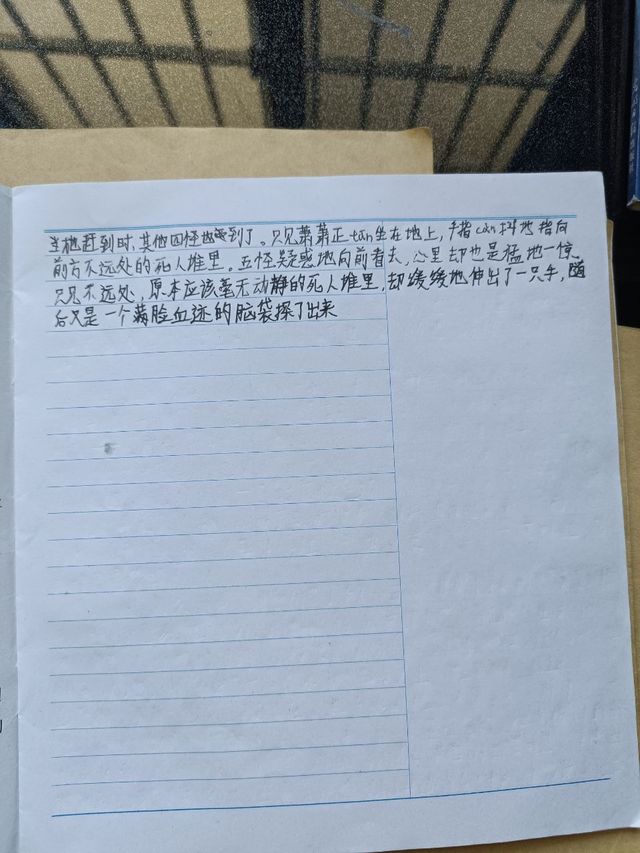 当他赶到时,其他四怪也都到了。只见萧萧正tān坐在地上,手指càn抖地指向
前方不远处的死人堆里。五怪疑惑地向前看去,心里却也是猛地一惊。
只见不远处,原本应该毫无动静的死人堆里,却缓缓地伸出了一只手,随
后又是一个满脸血迹的脑袋探了出来